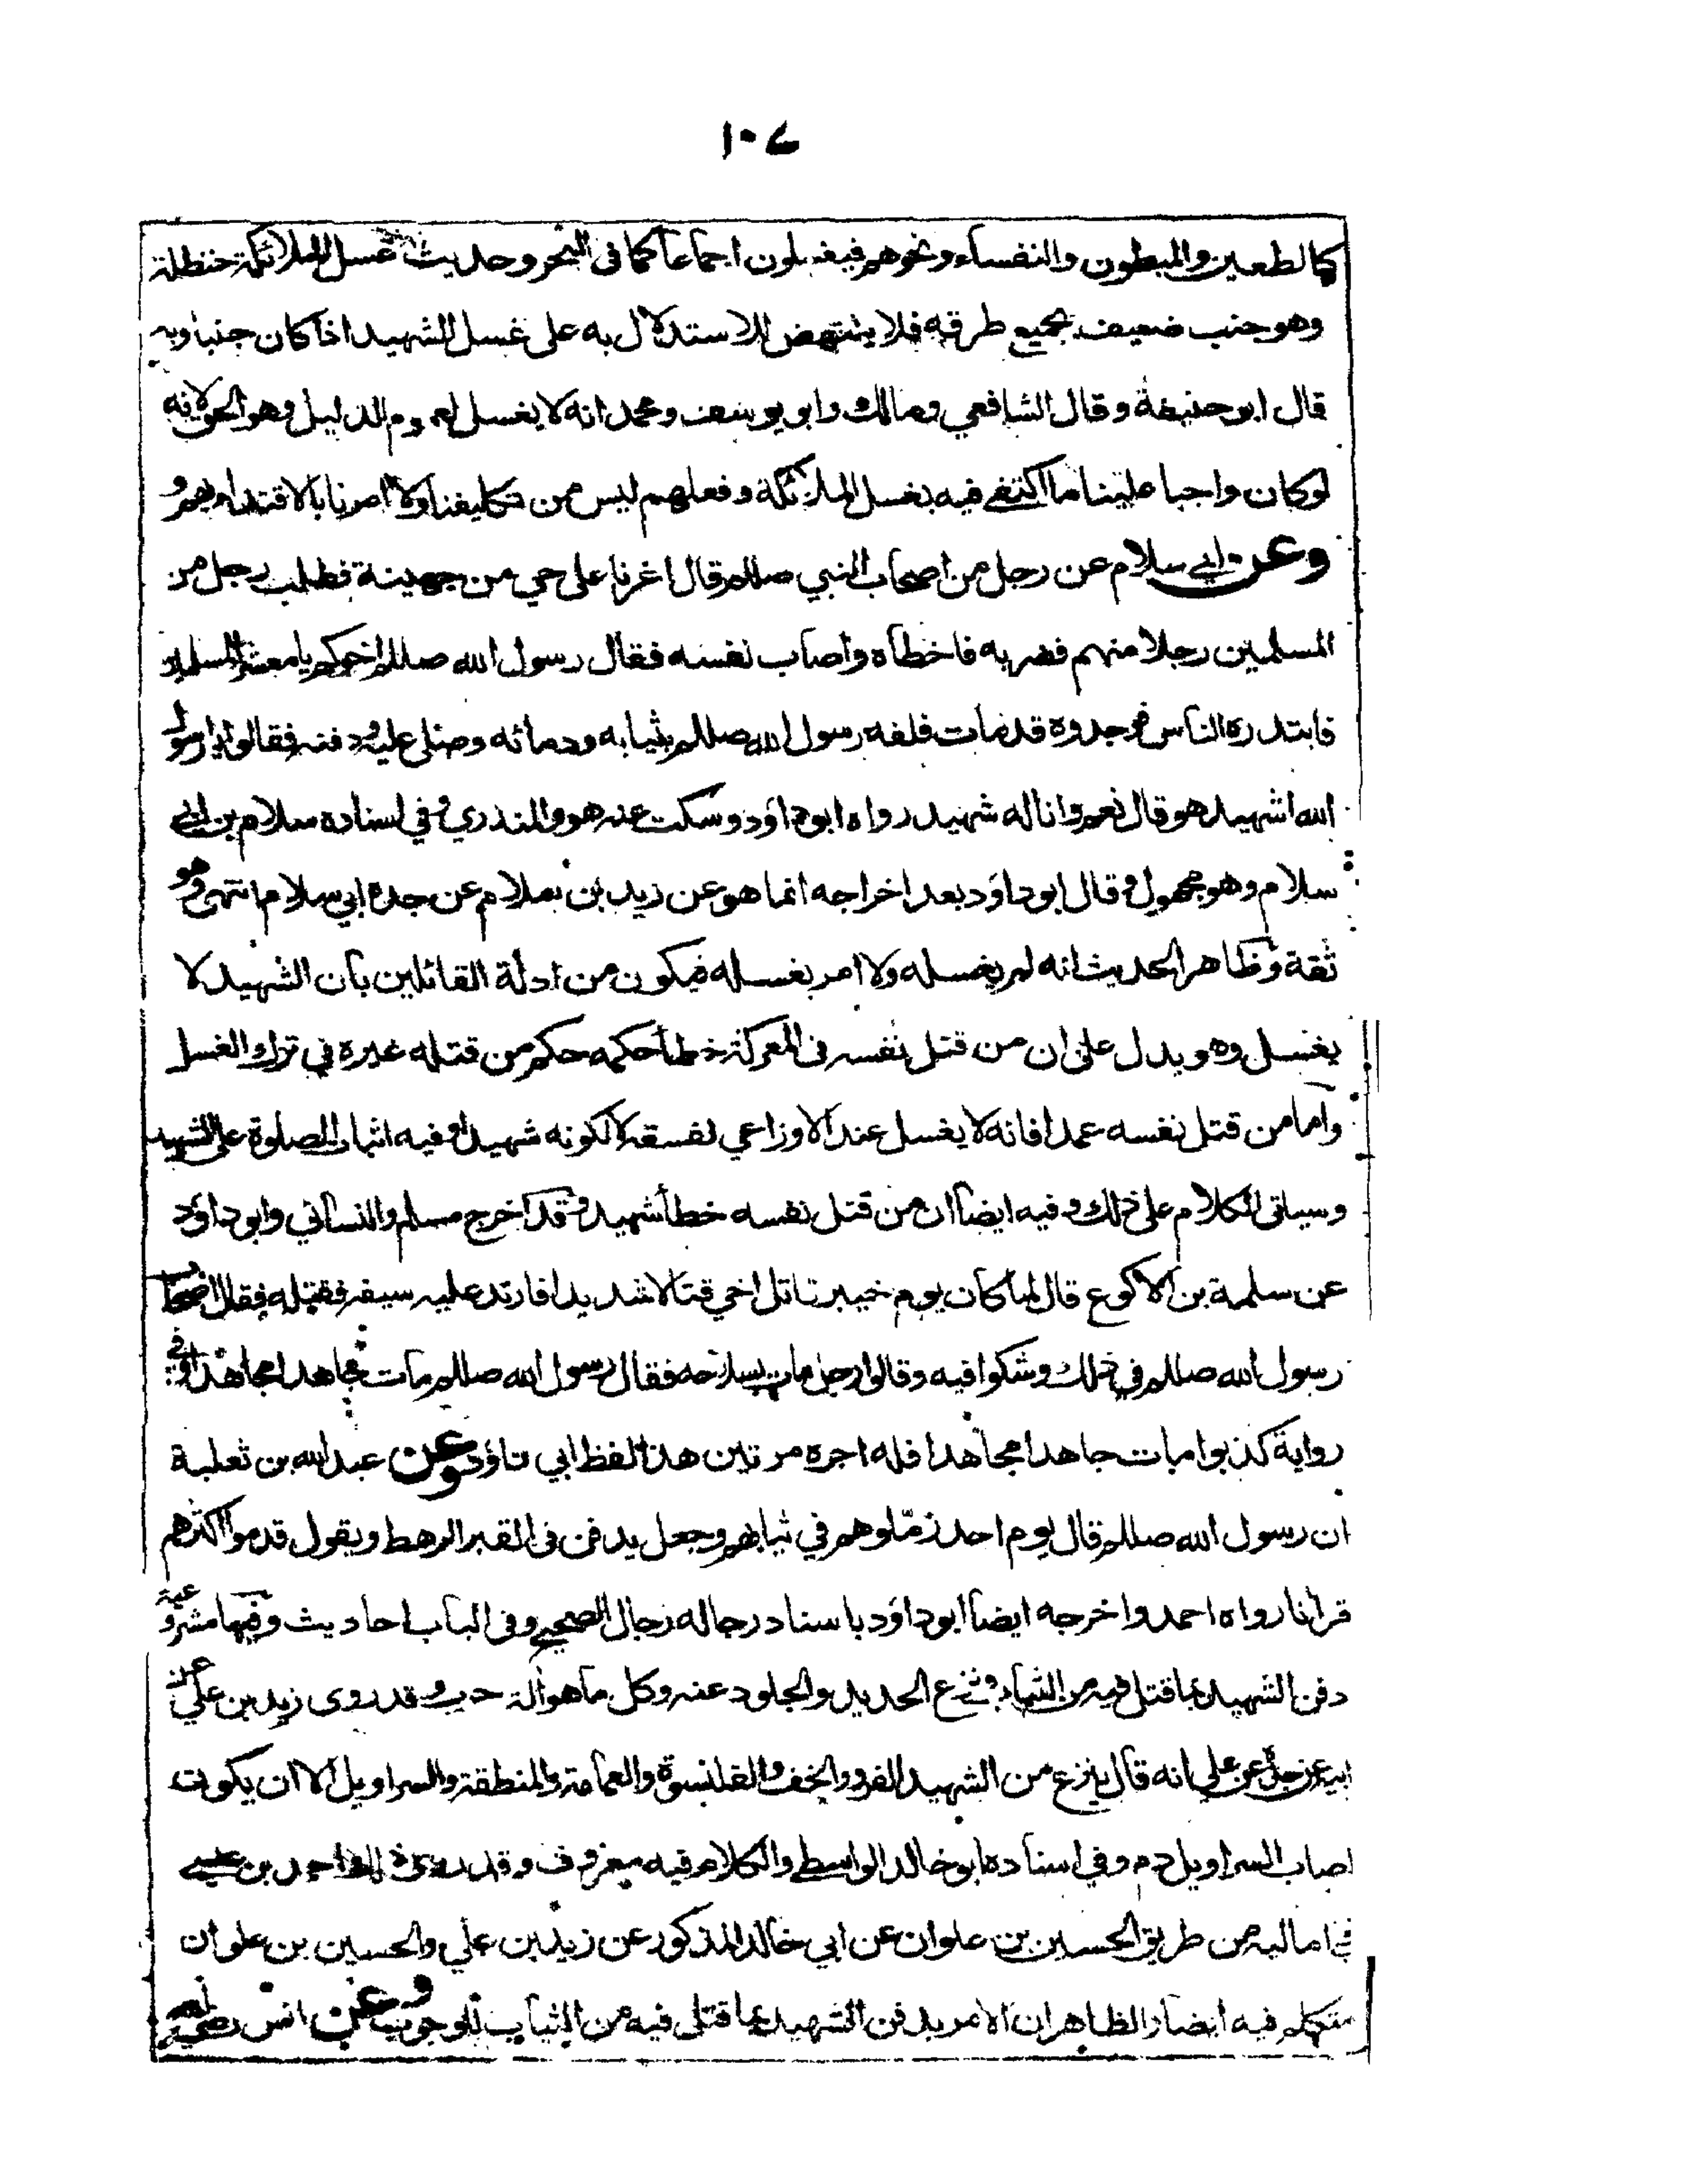 ١٠٧
كالطعين والمبطون والنفساء ونحوهم فيغسلون اجماعا كما فى البحر وحديث غسل الملائكة حنظلة
وهو جنب ضعيف بجميع طرقه فلا ينتهض للاستدلال به على غسل الشهيد اذا كان جنبا وبه
قال ابو حنيفة وقال الشافعي ومالك وابو يوسف ومحمد انه لا يغسل لعموم الدليل وهو الحق لانه
لو كان واجبا علينا ما اكتفى فيه بغسل الملائكة وفعلهم ليس من تكليفنا ولا امرنا بالاقتداء بهم و
وعن ابي سلام عن رجل من اصحاب النبي صللم قال اغرنا على حي من جهينة فطلب رجل من
المسلمين رجلا منهم فضربه فاخطأه واصاب نفسه فقال رسول الله صللم اخوكم يا معشر المسلمين
فابتدره الناس فوجدوه قد مات فلفه رسول الله صللم بثيابه ودمائه وصلى عليه ودفنه فقالوا يا رسول
الله اشهيد هو قال نعم وانا له شهيد رواه ابو داود وسكت عنه هو والمنذري وفي اسناده سلام بن ابي
سلام وهو مجهول وقال ابو داود بعد اخراجه انما هو عن زيد بن سلام عن جده ابي سلام انتهى وهو
ثقة وظاهر الحديث انه لم يغسله ولا امر بغسله فيكون من ادلة القائلين بان الشهيد لا
يغسل وهو يدل على ان من قتل نفسه فى المعركة خطأ حكمه حكم من قتله غيره في ترك الغسل
واما من قتل نفسه عمدا فانه لا يغسل عند الاوزاعي لفسقه لا لكونه شهيدا وفيه اثبات الصلوة على الشهيد
وسياتى الكلام على ذلك وفيه ايضا ان من قتل نفسه خطأ شهيد وقد اخرج مسلم والنسائي وابو داود
عن سلمة بن الاكوع قال لما كان يوم خيبر قاتل اخي قتالا شديدا فارتد عليه سيفه فقتله فقال اصحاب
رسول الله صللم في ذلك وشكوا فيه وقالوا رجل مات بسلاحه فقال رسول الله صللم مات جاهدا مجاهدا وفي
رواية كذبوا مات جاهدا مجاهدا فله اجره مرتين هذا لفظ ابي داؤد وعن عبد الله بن ثعلبة
ان رسول الله صللم قال يوم احد زمّلوهم في ثيابهم وجعل يدفن فى القبر الرهط ويقول قدموا اكثرهم
قرانا رواه احمد واخرجه ايضا ابو داود باسناد رجاله رجال الصحيح وفى الباب احاديث وفيها مشروعية
دفن الشهيد بما قتل فيه من الثياب ونزع الحديد والجلود عنه وكل ما هو ألة حرب وقد روى زيد بن علي عن
ابيه عن جده عن علي انه قال ينزع من الشهيد الفرو والخف والقلنسوة والعمامة والمنطقة والسراويل الا ان يكون
اصاب السراويل دم وفي اسناده ابو خالد الواسطي والكلام فيه معروف وقد رواه احمد بن عيسى
في اماليه من طريق الحسين بن علوان عن ابي خالد المذكور عن زيد بن علي والحسين بن علوان
متكلم فيه ايضا والظاهر ان الامر بدفن الشهيد بما قتل فيه من الثياب للوجوب وعن انس رضي الله